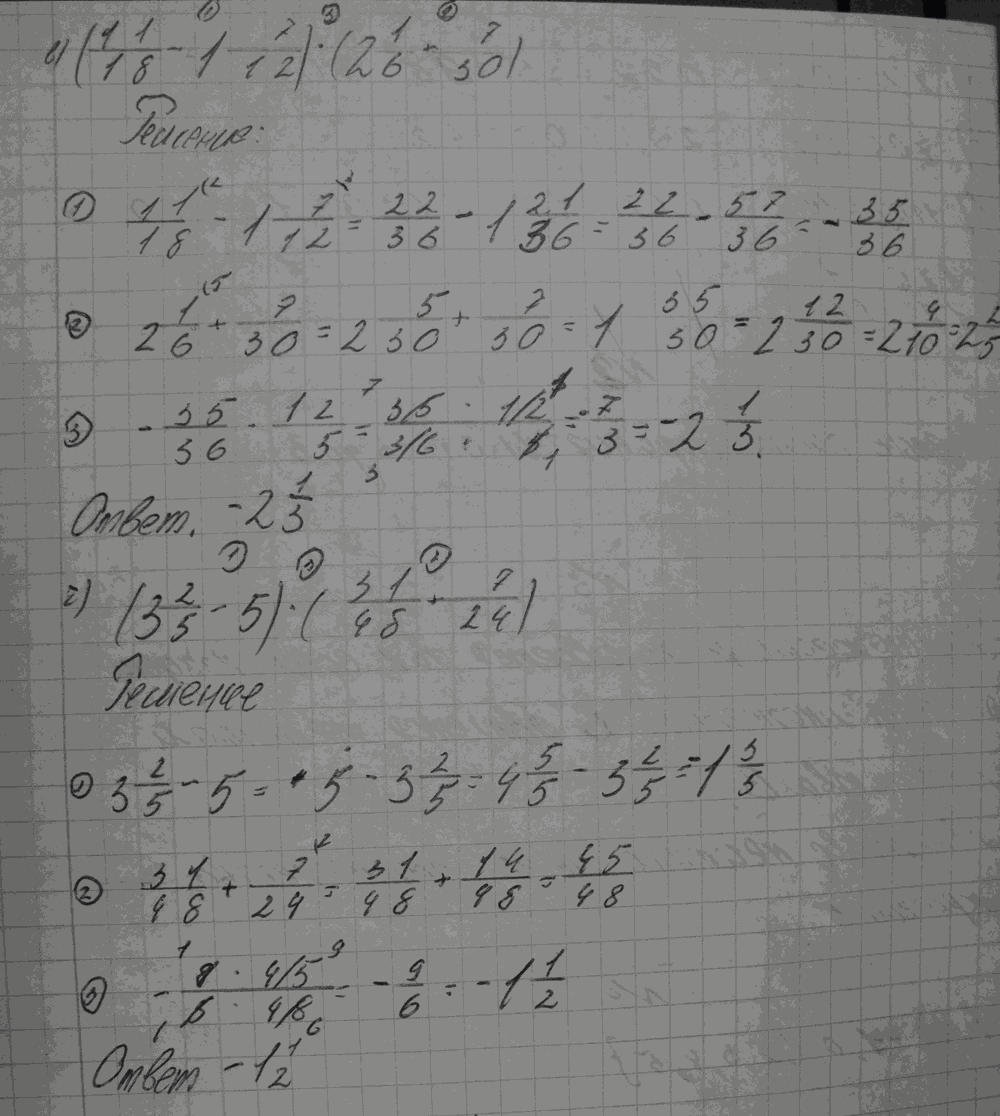 в) (11/18 - 1 7/12) · (2 1/6 + 7/30)
Решение:
① 11/18 - 1 7/12 = 22/36 - 1 21/36 = 22/36 - 57/36 = - 35/36
② 2 1/6 + 7/30 = 2 5/30 + 7/30 = 1 35/30 = 2 12/30 = 2 4/10 = 2 2/5
③ - 35/36 · 12/5 = 35 · 12/36 · 5 = - 7/3 = - 2 1/3.
Ответ. - 2 1/3
г) (3 2/5 - 5) · (31/48 + 7/24)
Решение
① 3 2/5 - 5 = 5 - 3 2/5 = 4 5/5 - 3 2/5 = - 1 3/5
② 31/48 + 7/24 = 31/48 + 14/48 = 45/48
③ - 8 · 45/5 · 48 = - 9/6 = - 1 1/2
Ответ - 1 1/2